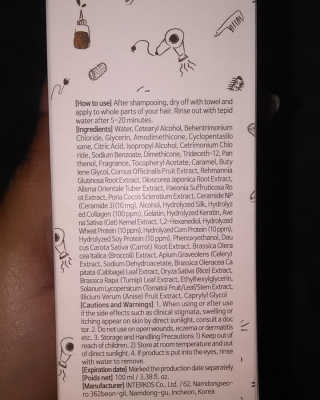 [How to use] After shampooing, dry off with towel and
apply to whole parts of your hair. Rinse out with tepid
water after 5~20 minutes.
[Ingredients] Water, Cetearyl Alcohol, Behentrimonium
Chloride, Glycerin, Amodimethicone, Cyclopentasilo
xane, Citric Acid, Isopropyl Alcohol, Cetrimonium Chlo
ride, Sodium Benzoate, Dimethicone, Trideceth-12, Pan
thenol, Fragrance, Tocopheryl Acetate, Caramel, Buty
lene Glycol, Cornus Officinalis Fruit Extract, Rehmannia
Glutinosa Root Extract, Dioscorea Japonica Root Extract,
Alisma Orientale Tuber Extract, Paeonia Suffruticosa Ro
ot Extract, Poria Cocos Sclerotium Extract, Ceramide NP
(Ceramide 3)(10 mg), Alcohol, Hydrolyzed Silk, Hydrolyz
ed Collagen (100 ppm), Gelatin, Hydrolyzed Keratin, Ave
na Sativa (Oat) Kernel Extract, 1,2-Hexanediol, Hydrolyzed
Wheat Protein (10 ppm), Hydrolyzed Corn Protein (10 ppm),
Hydrolyzed Soy Protein (10 ppm), Phenoxyethanol, Dau
cus Carota Sativa (Carrot) Root Extract, Brassica Olera
cea Italica (Broccoli) Extract, Apium Graveolens (Celery)
Extract, Sodium Dehydroacetate, Brassica Oleracea Ca
pitata (Cabbage) Leaf Extract, Oryza Sativa (Rice) Extract,
Brassica Rapa (Turnip) Leaf Extract, Ethylhexylglycerin,
Solanum Lycopersicum (Tomato) Fruit/Leaf/Stem Extract,
Illicium Verum (Anise) Fruit Extract, Caprylyl Glycol
[Cautions and Warnings] 1. When using or after use
if the side effects such as clinical stigmata, swelling or
itching appear on skin by direct sunlight, consult a doc
tor. 2. Do not use on open wounds, eczema or dermatitis
etc. 3. Storage and Handling Precautions 1) Keep out of
reach of children. 2) Store at room temperature and out
of direct sunlight. 4. If product is put into the eyes, rinse
with water to remove.
[Expiration date] Marked the production date separately
[Poids net] 100 ml / 3.38 fl. oz.
[Manufacturer] INTERKOS Co., Ltd. /62, Namdongseo-
ro 362beon-gil, Namdong-gu, Incheon, Korea